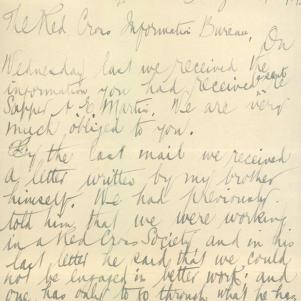 The Red Cross Information Bureau,
On
Wednesday last we received the
information you had received re
Sapper A E Martin. We are very
much obliged to you.
By the last mail we received
a letter written by my brother
himself. We had previously
told him that we were working
in a Red Cross Society, and in his
last letter he said that we could
not be engaged in better work, and
one has only to go through what he has